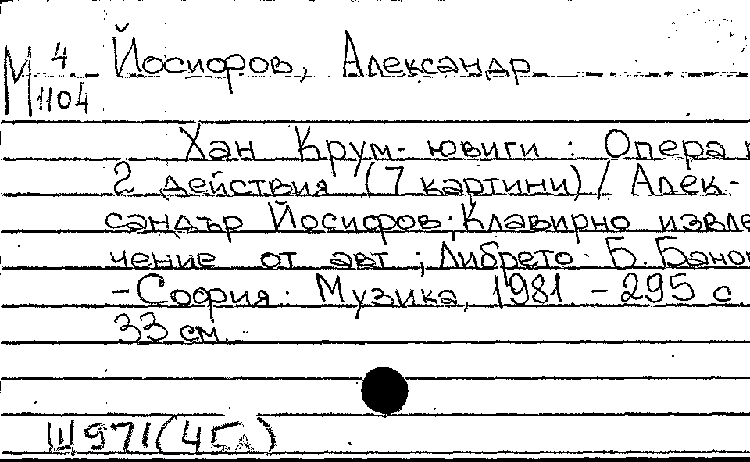 М 4. Йосифов, Александр
1104
Хан Крум-ювиги : Опера в
2 действия (7 картини) / Алек-
сандър Йосифов; Клавирно извле
чение от авт ; Либрето Б. Банов
-София: Музика, 1981 - 295 с.
33 см.
Ш 971(45А)